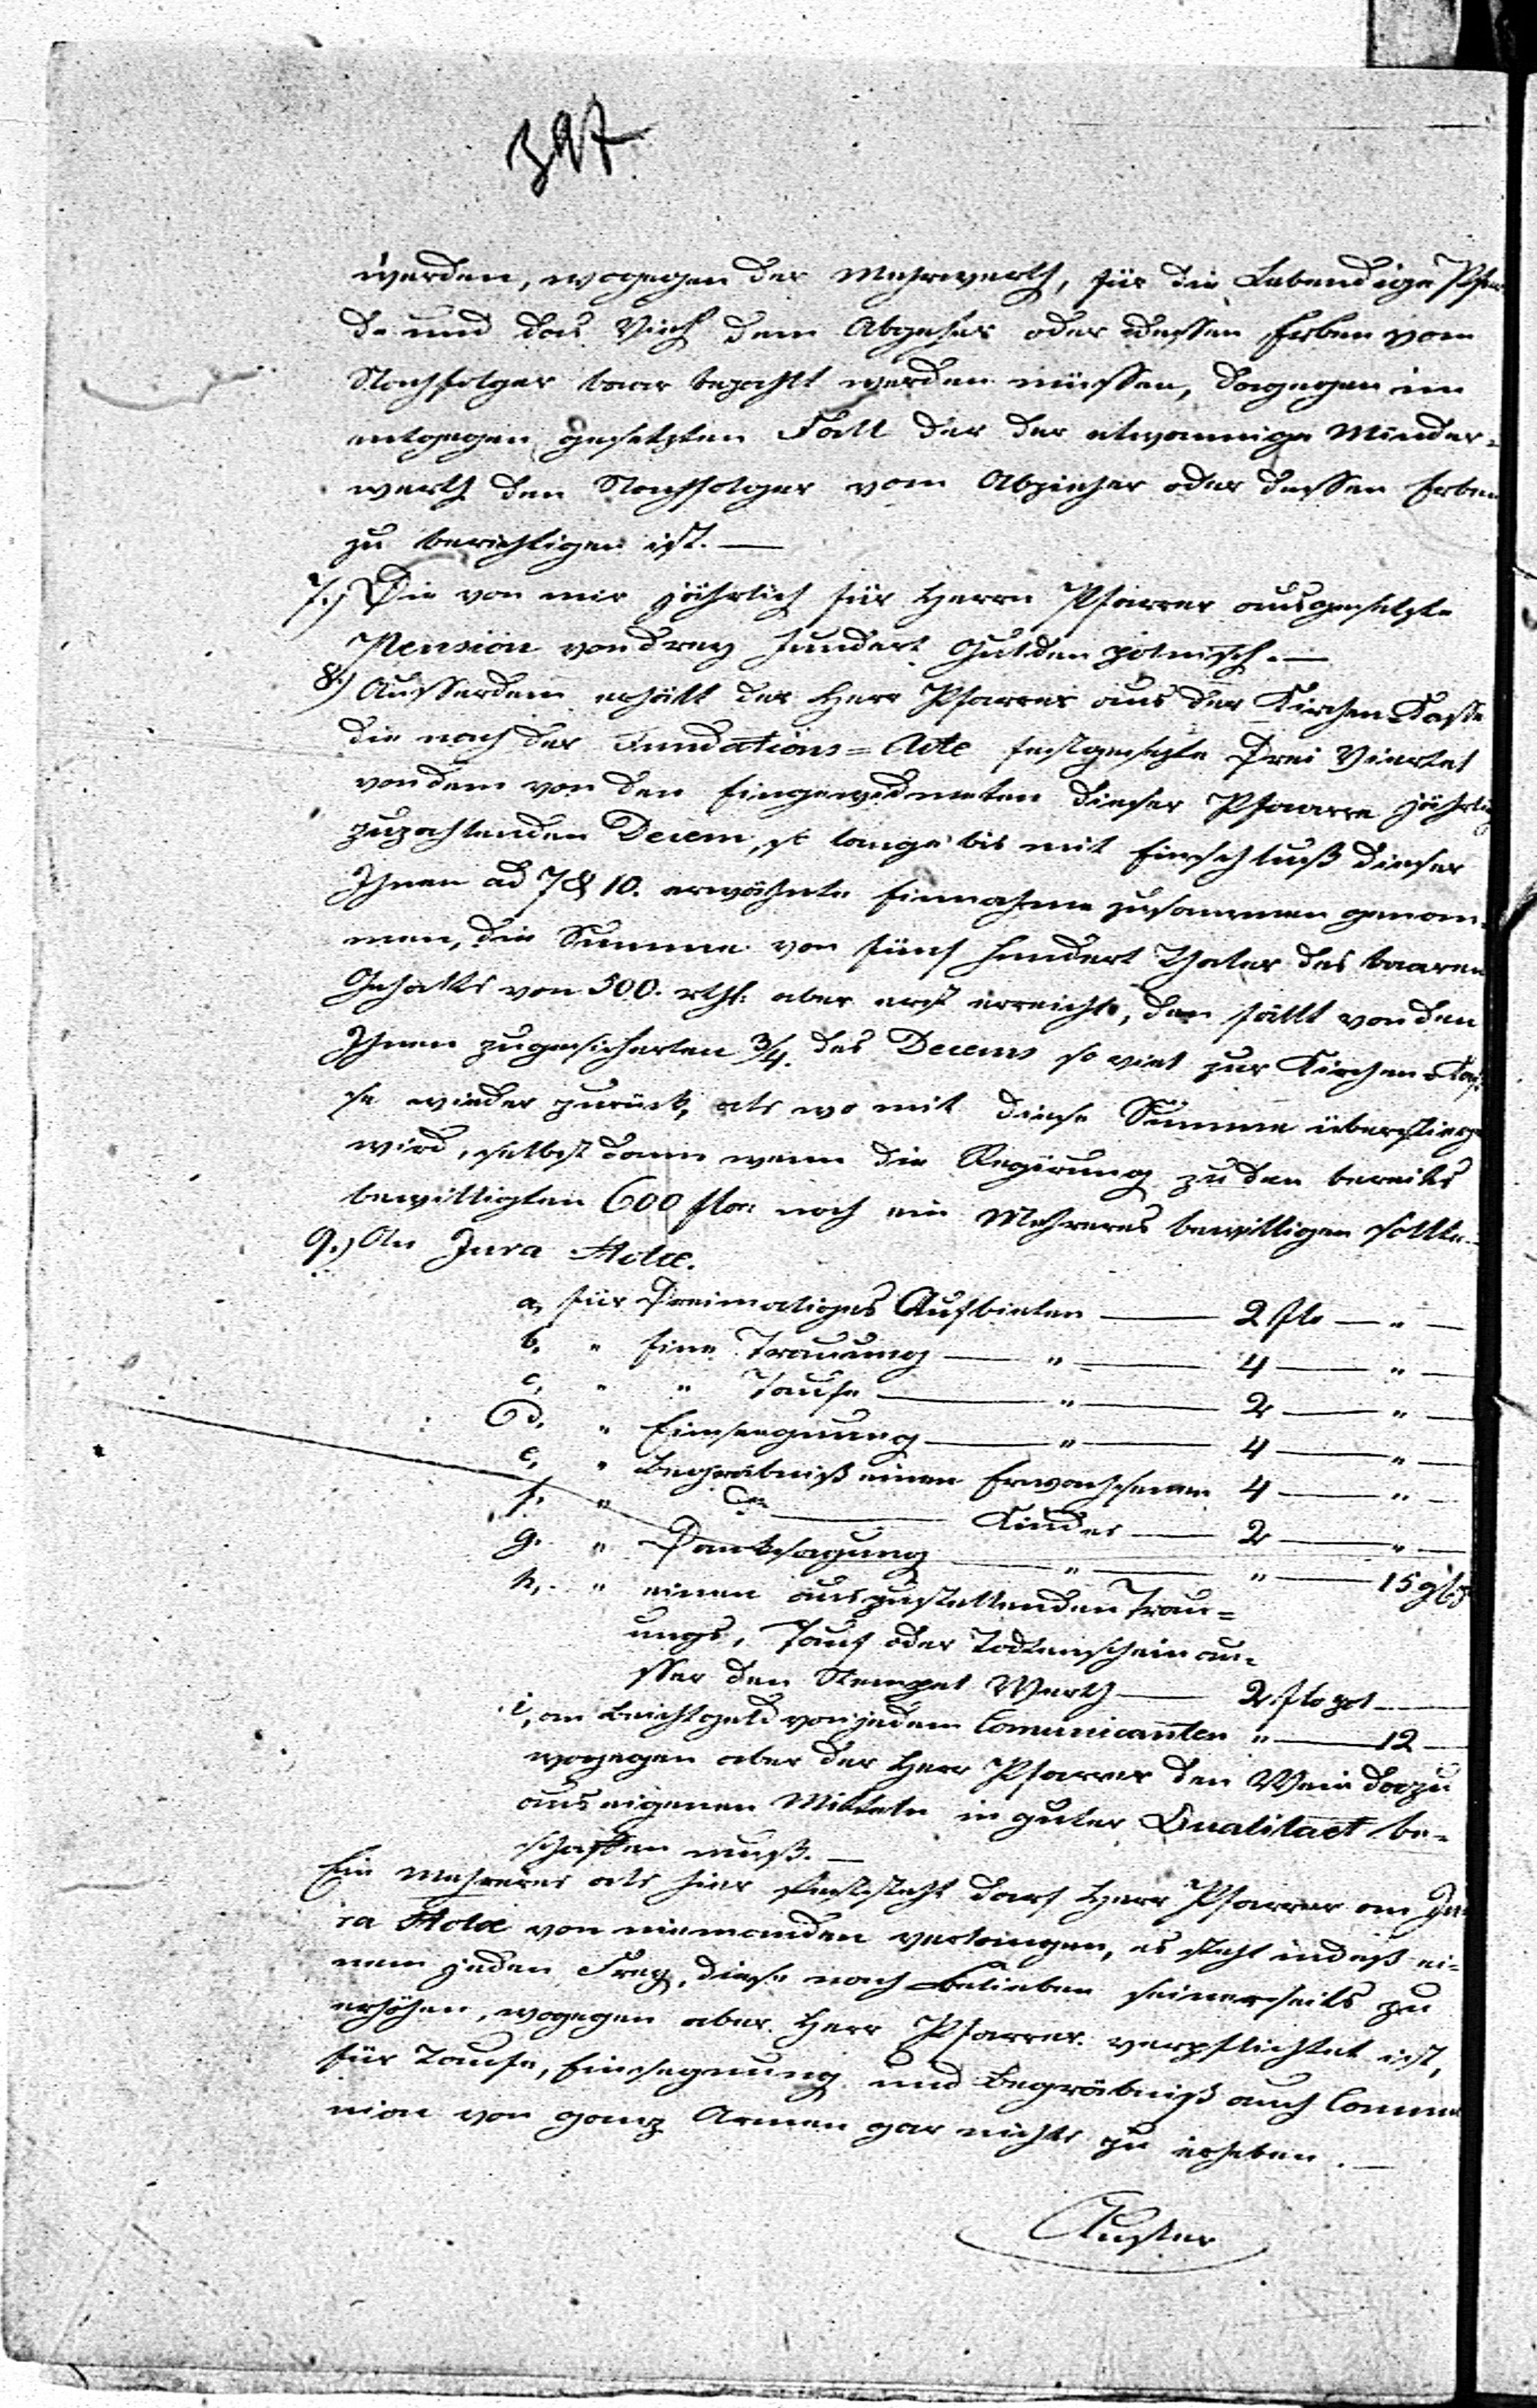 397
werden, wogegen der Mehrwerth, für die Lebendige Pfer
de und das Vieh dem Abgeher oder dessen Erben vom
Nachfolger baar bezahlt werden müssen, dagegen im
entgegen gesetzten Fall der der etwannige Minder-
werth den Nachfolger vom Abzieher oder dessen Erben
zu berichtigen ist. —
7.) Die von mir jährlich für Herrn Pfarrer ausgesetzte
Pension von drey hundert Gulden polnisch. —
8.) Ausserdem erhält der Herr Pfarrer aus der Kirchen Kasse
die nach der Fundations=Acte festgesetzte Drei Viertel
von dem von den Eingewidmeten dieser Pfaarre jährlich
zuzahlenden Decem, so lange bis mit Einschluß dieser
Ihnen ad 7 & 10. erwähnte Einnahme zusammen genom-
men, die Summe von fünf hundert Thaler des baaren
Gehalts von 500. rthl: aber erst erreicht, dan fällt von den
Ihnen zugesicherten 3/4. des Decems so viel zur Kirchen Kas-
se wieder zurück, als wo mit diese Summe überstiegen
wird, selbst dann wenn die Regirung zu den bereits
bewilligten 600 flor: noch ein Mehreres bewilligen sollte. —
9.) An Jura Stolæ.
a, für Dreimaliges Aufbieten — 2 flo — " —
b, " Eine Trauung — " — 4 — " —
c, " " Taufe — " — 2 — " —
d, " Einseegnung — " — 4 — " —
e, " Begräbniß einen Erwachsenen 4 — " —
f, " do — Kindes — 2 — " —
g, " Danksagung — " — " — 15 gl
h, " einen auszustellenden Trau=
ungs, Tauf oder Todtenschein au=
sser den Stempel Werth — 2 flo pol —
i, an Beichtgeld von jedem Comunicanten " — 12 —
wogegen aber der Herr Pfarrer den Wein dazu
aus eigenen Mitteln in guter Qualitaet be-
schaffen muß. —
Ein Mehreres als hier feststeht darf Herr Pfarrer an Ju
ra Stolæ von niemanden verlangen, es steht indeß ei-
nem jeden Frey, diese nach Belieben seinerseits zu
erhöhen, wogegen aber Herr Pfarrer verpflichtet ist,
für Taufe, Einsegnung und Begräbniß auch Commu
nion von ganz Armen gar nichts zu erheben. —